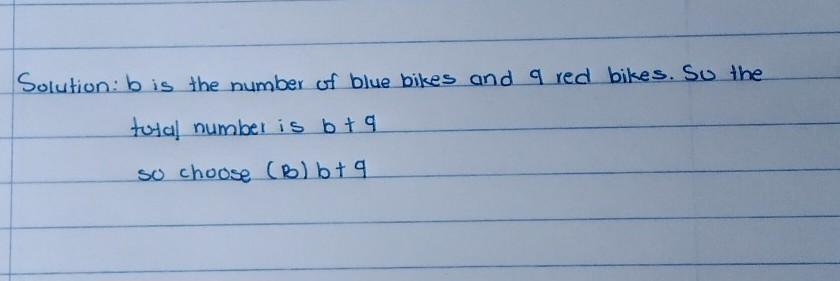 Solution: b is the number of blue bikes and 9 red bikes. So the
total number is b + 9
so choose (B) b + 9